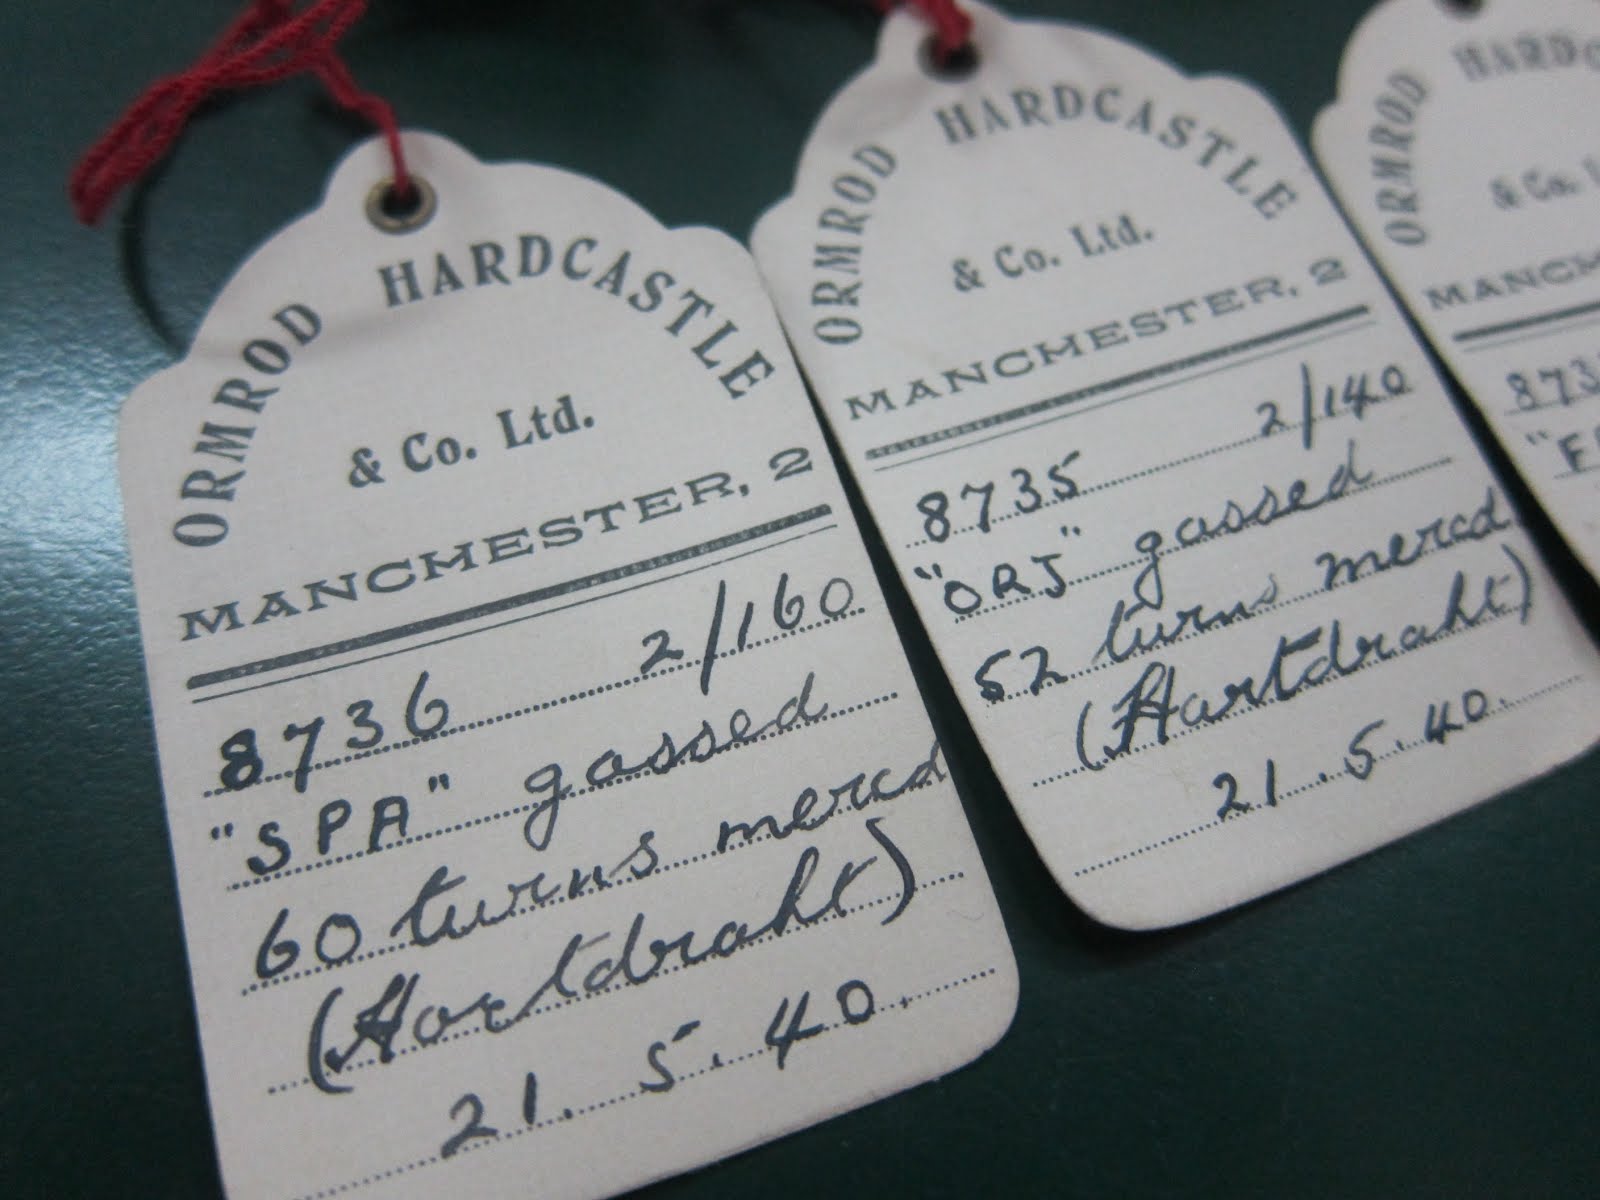 ORMROD HARDCASTLE
& Co. Ltd.
MANCHESTER, 2
8736 2/160
"SPA" gassed
60 turns mercd
(Hartdraht)
21.5.40.
ORMROD HARDCASTLE
& Co. Ltd.
MANCHESTER, 2
8735 2/140
"ORJ" gassed
52 turns mercd
(Hartdraht)
21.5.40.
ORMROD HARDC
& Co.
MANCH
873